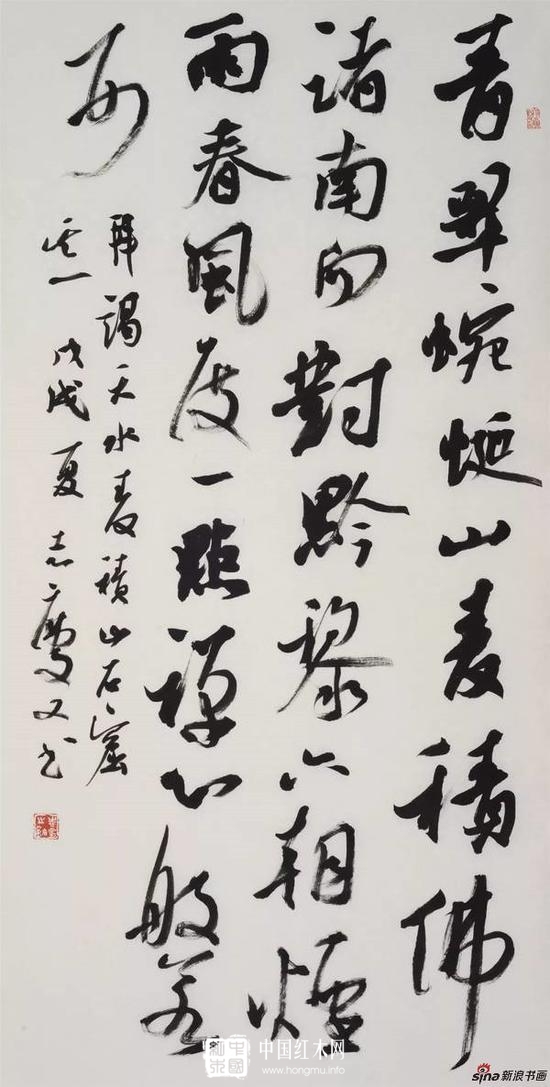 青翠蜿蜒山麦積佛
诸南向對黔黎六朝煙
雨春風度一點禅心般若
西
拜謁天水麦積山石窟
其一 戊戌夏志慶又书
中国红木网
www.hongmu.info
sina新浪书画